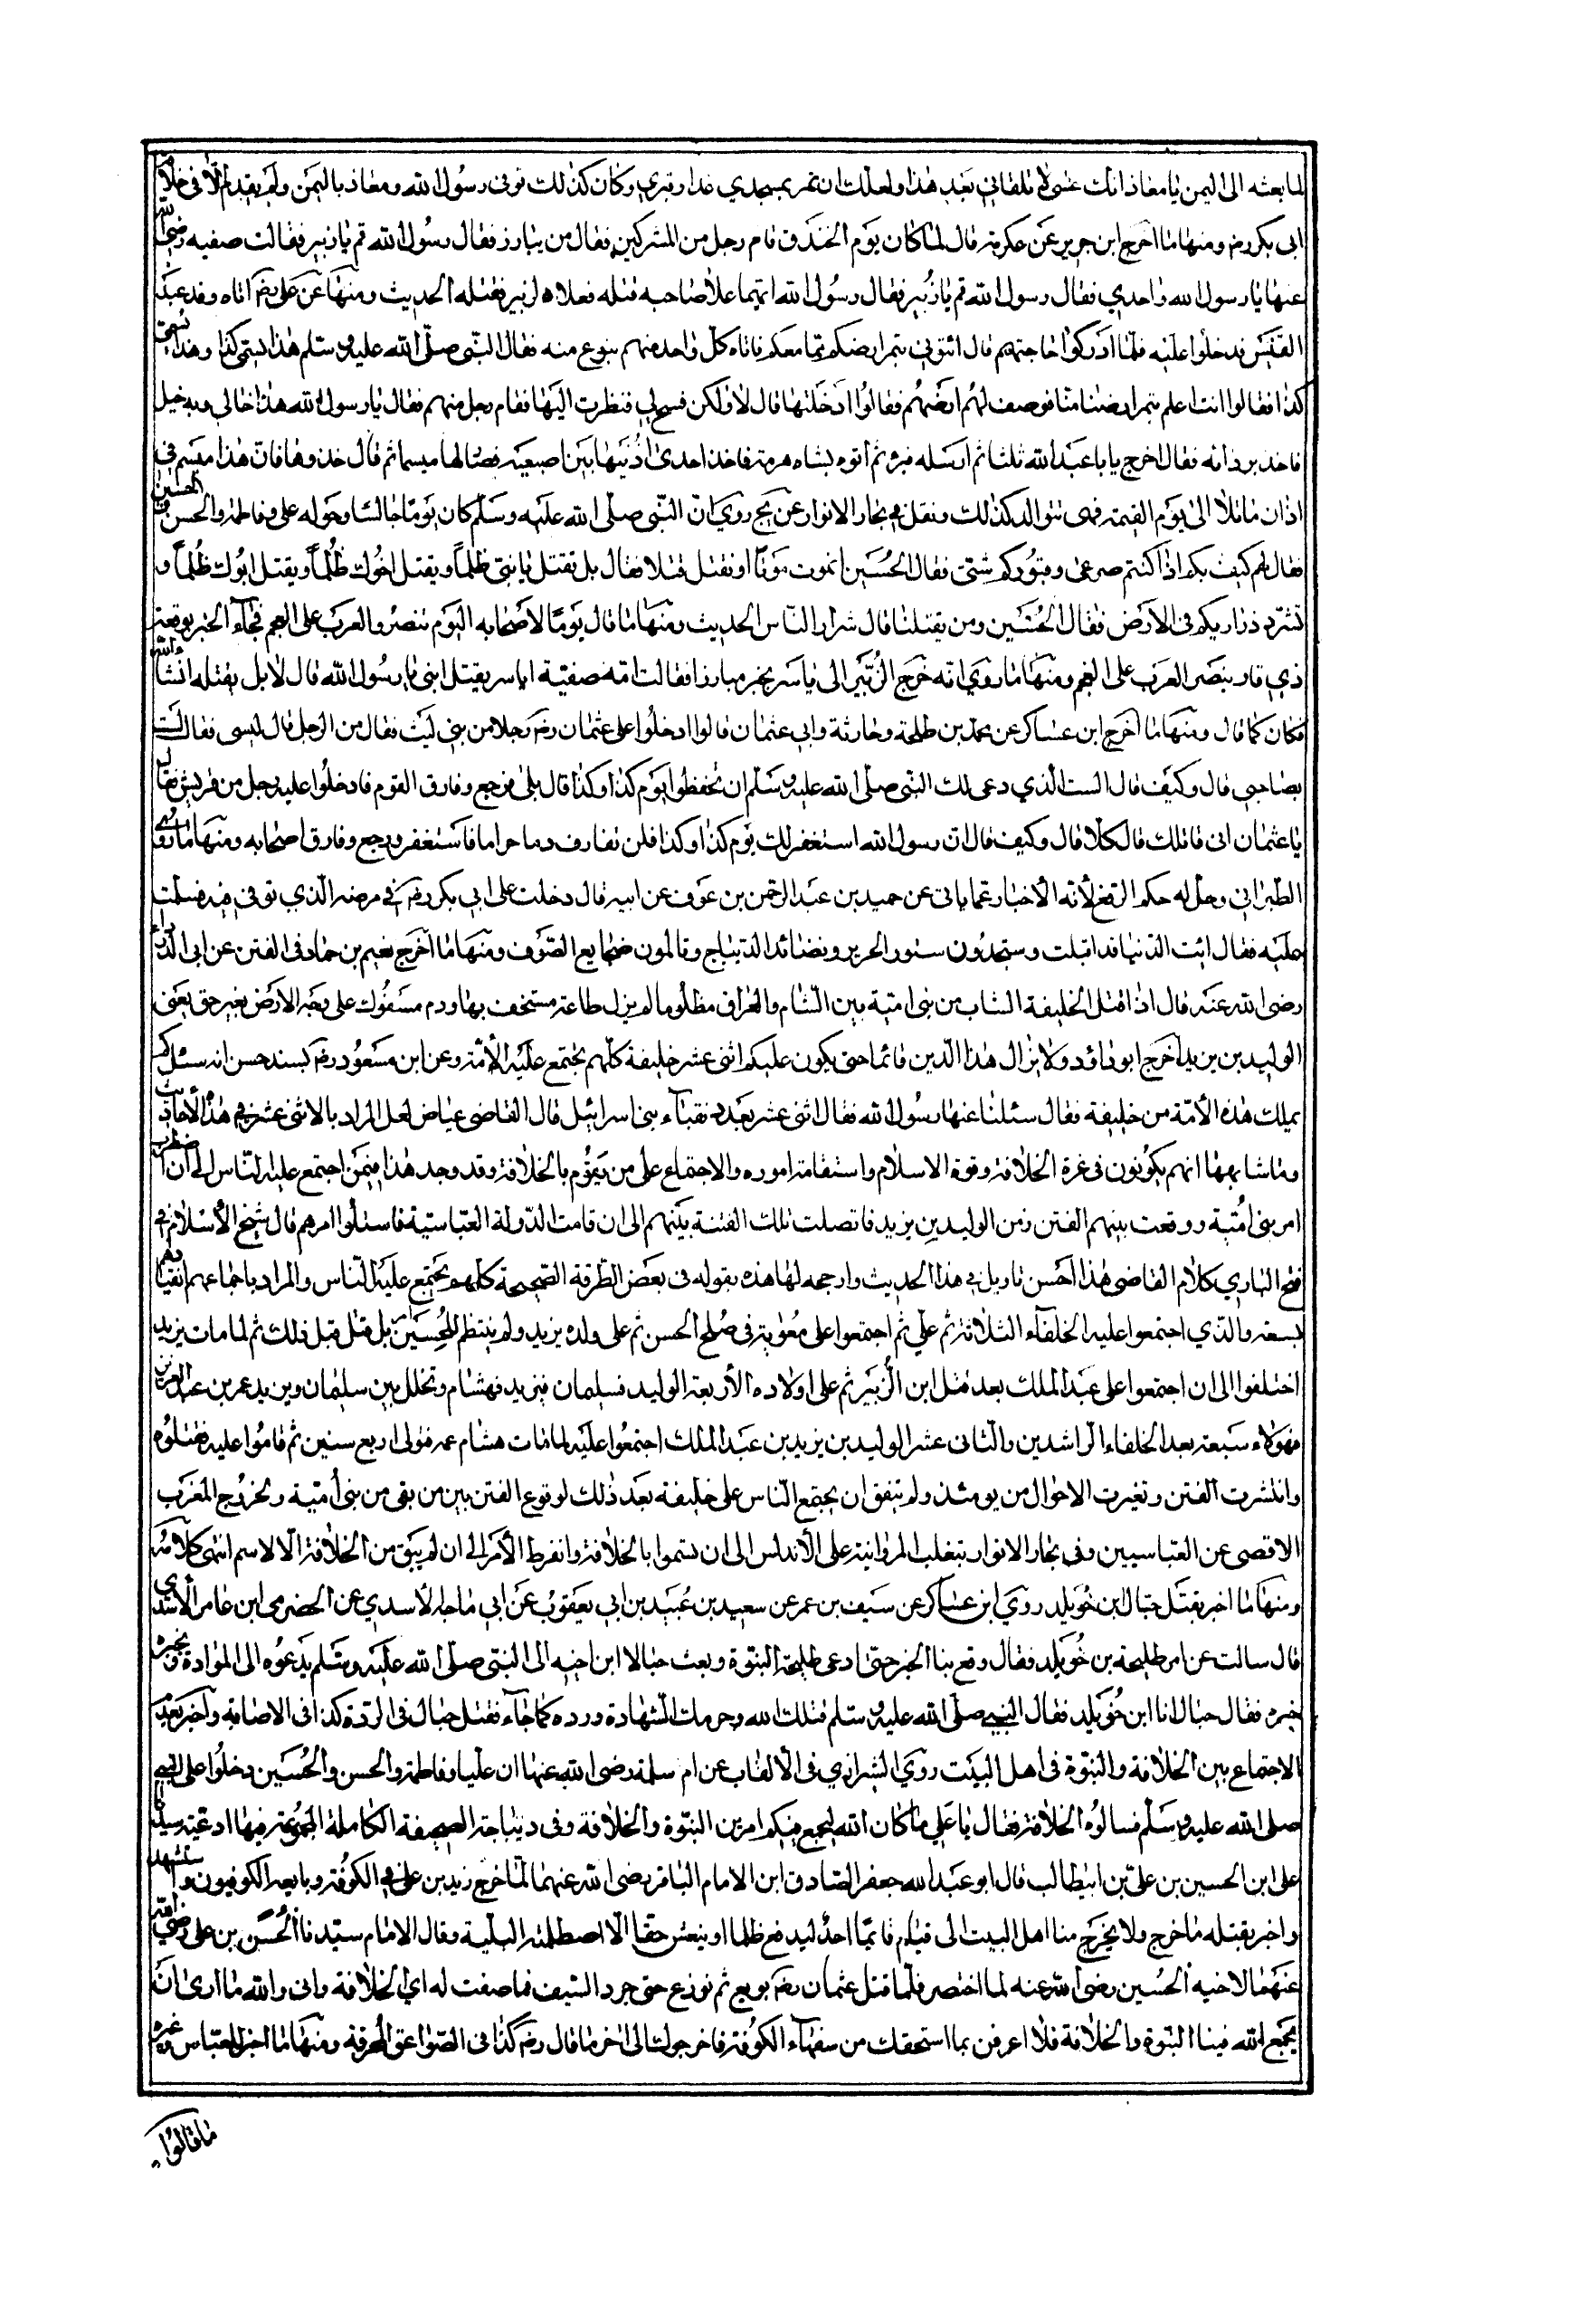 لما بعثه الى اليمن يا معاذ انك عسى لا تلقاني بعد هذا ولعلك ان تمر بمسجدي هذا وقبري وكان كذلك توفى رسول الله ومعاذ باليمن ولم يقدم الا فى خلافة
ابى بكر رضه ومنها ما اخرج ابن جرير عن عكرمة قال لما كان يوم الخندق قام رجل من المشركين فقال من يبارز فقال رسول الله قم يا زبير فقالت صفيه رضى الله
عنها يا رسول الله واحدي فقال رسول الله قم يا زبير فقال رسول الله ايهما علا صاحبه قتله فعلاه الزبير فقتله الحديث ومنها عن على رضه اتاه وفد عبد
القيس فدخلوا عليه فلما ادركوا حاجتهم قال ائتوني بتمر ارضكم مما معكم فاتاه كل واحد منهم بنوع منه فقال النبى صلى الله عليه وسلم هذا يسمى كذا وهذا يسمى
كذا فقالوا انت اعلم بتمر ارضنا منا فوصف لهم ارضهم فقالوا ادخلتها قال لا ولكن فسح لي فنظرت اليها فقام رجل منهم فقال يا رسول الله هذا خالي وبه خبل
فاخذ بردائه فقال اخرج يا با عبد الله ثلثا ثم ارسله فبرئ ثم اتوه بشاه هرمة فاخذ احدى اذنيها بين اصبعيه فصار لها ميسما ثم قال خذوها فان هذا ميسم فى
اذان ما تلد الى يوم القيمة فهى تتوالد كذلك ونقل فى بحار الانوار عن يج روي ان النبى صلى الله عليه وسلم كان يوما جالسا وحوله على وفاطمة والحسن والحسين
فقال لهم كيف بكم اذا كنتم صرعى وقبوركم شتى فقال الحسين انموت موتا او نقتل قتلا فقال بل تقتل يا بنى ظلما ويقتل اخوك ظلما ويقتل ابوك ظلما و
تشرد ذراريكم فى الارض فقال الحسين ومن يقتلنا قال شرار الناس الحديث ومنها ما قال يوما لاصحابه اليوم تنصر العرب على العجم فجاء الخبر بوقعة
ذي قار بنصر العرب على العجم ومنها ما روي انه خرج الزبير الى ياسر بخيبر مبارزا فقالت امه صفية اياسر يقتل ابنى يا رسول الله قال لا بل يقتله انشاء الله
فكان كما قال ومنها ما اخرج ابن عساكر عن محمد بن طلحة وحارثة وابي عثمان قالوا ادخلوا على عثمان رضه رجلا من بنى ليث فقال من الرجل قال ليسى فقال لست
بصاحبى قال وكيف قال الست الذي دعى لك النبى صلى الله عليه وسلم ان تحفظوا يوم كذا وكذا قال بلى فرجع وفارق القوم فادخلوا عليه رجل من قريش فقال
يا عثمان انى قاتلك قال كلا قال وكيف قال ان رسول الله استغفر لك يوم كذا وكذا فلن تقارف دما حراما فاستغفر ورجع وفارق اصحابه ومنها ما روى
الطبراني وجل له حكم الرفع لانه الاخبار عما ياتى عن حميد بن عبد الرحمن بن عوف عن ابيه قال دخلت على ابي بكر رضه فى مرضه الذي توفي فيه فسلمت
عليه فقال رايت الدنيا قد اقبلت وستجدون ستور الحرير ونضائد الديباج وتالمون ضجايع الصوف ومنها ما اخرج نعيم بن حماد فى الفتن عن ابى الدرداء
رضى الله عنه قال اذا قتل الخليفة الشاب من بنى امية بين الشام والعراق مظلوما لم يزل طاعة مستخف بها ودم مسفوك على وجه الارض بغير حق يعنى
الوليد بن يزيد اخرج ابو داؤد ولا يزال هذا الدين قائما حتى يكون عليكم اثنى عشر خليفة كلهم تجتمع عليه الامة وعن ابن مسعود رضه بسند حسن انه سئل كم
يملك هذه الامة من خليفة فقال سئلنا عنها رسول الله فقال اثنى عشر بعدد نقباء بنى اسرائيل قال القاضى عياض لعل المراد بالاثنى عشر فى هذه الاحاديث
وما شابهها انهم يكونون فى عزة الخلافة وقوة الاسلام واستقامة اموره والاجتماع على من يقوم بالخلافة وقد وجد هذا فيمن اجتمع عليه الناس الى ان اضطرب
امر بنى امية ووقعت بينهم الفتن زمن الوليد بن يزيد فاتصلت تلك الفتنة بينهم الى ان قامت الدولة العباسية فاستئلوا امرهم قال شيخ الاسلام فى
فتح الباري كلام القاضى هذا احسن تاويل فى هذا الحديث وارجحه لها هذه بقوله فى بعض الطرقة الصحيحة كلهم يجتمع عليه الناس والمراد باجماعهم انقيادهم
لبيعته والذي اجتمعوا عليه الخلفاء الثلاثة ثم علي ثم اجتمعوا على معوية فى صلح الحسن ثم على ولده يزيد ولم ينتظم للحسين امر بل قتل قبل ذلك ثم لما مات يزيد
اختلفوا الى ان اجتمعوا على عبد الملك بعد قتل ابن الزبير ثم على اولاده الاربعة الوليد فسليمان فيزيد فهشام وتخلل بين سليمان ويزيد عمر بن عبد العزيز
فهؤلاء سبعة بعد الخلفاء الراشدين والثانى عشر الوليد بن يزيد بن عبد الملك اجتمعوا عليه لما مات هشام عمه فولى اربع سنين ثم قاموا عليه فقتلوه
وانتشرت الفتن وتغيرت الاحوال من يومئذ ولم يتفق ان يجتمع الناس على خليفة بعد ذلك لوقوع الفتن بين من بقى من بنى امية ولخروج المغرب
الاقصى عن العباسيين وفى بحار الانوار بتغلب المروانية على الاندلس الى ان تسموا بالخلافة وانفرط الامر الى ان لم يبق من الخلافة الا الاسم انتهى كلامه
ومنها ما اخبر بقتل حبال ابن خويلد روي ابن عساكر عن سيف بن عمر عن سعيد بن عبيد بن ابي يعقوب عن ابي ماجد الاسدي عن الحضرمى ابن عامر الاسدي
قال سالت عن امر طليحة بن خويلد فقال وقع بنا الخبر حتى ادعى طليحة النبوة وبعث حبالا ابن اخيه الى النبى صلى الله عليه وسلم يدعوه الى الموادة ويخبره
خبره فقال حبال انا ابن خويلد فقال النبى صلى الله عليه وسلم قتلك الله وحرمك الشهادة ورده كما جاء فقتل حبال فى الردة كذا فى الاصابة واخبر بعدم
الاجتماع بين الخلافة والنبوة فى اهل البيت روي الشيرازي فى الالقاب عن ام سلمة رضى الله عنها ان عليا وفاطمة والحسن والحسين دخلوا على النبى
صلى الله عليه وسلم فسالوه الخلافة فقال يا علي ما كان الله ليجمع فيكم امرين النبوة والخلافة وفى ديباجة الصحيفة الكاملة المجموعة فيها ادعية سيدنا
على ابن الحسين بن على بن ابيطالب قال ابو عبد الله جعفر الصادق ابن الامام الباقر رضى الله عنهما لما خرج زيد بن على فى الكوفة وبايعه الكوفيون واستشهد
واخبر بقتله ما خرج ولا يخرج منا اهل البيت الى قيام قائمنا احد ليدفع ظلما او ينعش حقا الا اصطلمته البلية وقال الامام سيدنا الحسن بن على رضى الله
عنهما لاخيه الحسين رضى الله عنه لما احتضر فلما قتل عثمان رضه بويع ثم نوزع حتى جرد السيف فما صفت له اي الخلافة وانى والله ما ارى ان
يجمع الله فينا النبوة والخلافة فلا اعرفن بما استخفك من سفهاء الكوفة فاخرجوك الى اخر ما قال رضه كذا فى الصواعق المحرقة ومنها ما اخبر العباس وغيره
ما قالوا